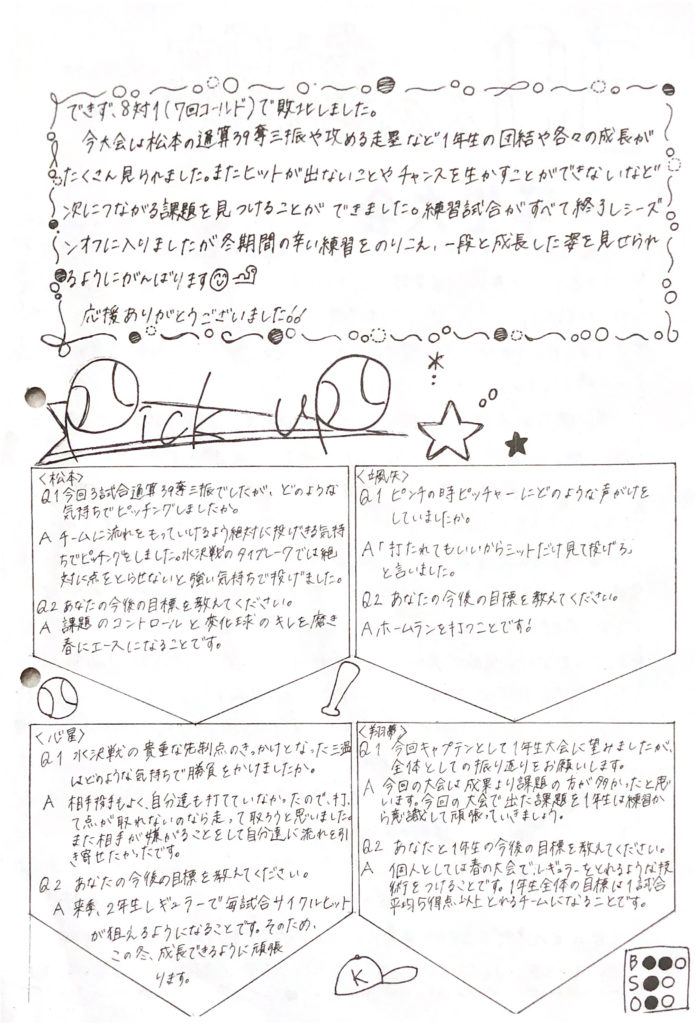 できず、8対1(7回コールド)で敗北しました。
今大会は松本の通算39奪三振や攻める走塁など1年生の団結や各々の成長が
たくさん見られました。またヒットが出ないことやチャンスを生かすことができないなど
次につながる課題を見つけることができました。練習試合がすべて終了しシーズ
ンオフに入りましたが冬期間の辛い練習をのりこえ、一段と成長した姿を見せられ
るようにがんばります
応援ありがとうございました
Pick up
〈松本〉
Q1 今回3試合通算39奪三振でしたが、どのような
気持ちでピッチングしましたか。
A チームに流れをもっていけるよう絶対に投げきる気持
ちでピッチングをしました。水沢戦のタイブレークでは絶
対に点をとらせないと強い気持ちで投げました。
Q2 あなたの今後の目標を教えてください。
A 課題のコントロールと変化球のキレを磨き
春にエースになることです。
〈颯矢〉
Q1 ピンチの時ピッチャーにどのような声がけを
していましたか。
A「打たれてもいいからミットだけ見て投げろ」
と言いました。
Q2 あなたの今後の目標を教えてください。
A ホームランを打つことです!
〈心星〉
Q1 水沢戦の貴重な先制点のきっかけとなった三盗
はどのような気持ちで勝負をかけましたか。
A 相手投手もよく、自分達も打てていなかったので、打っ
て点が取れないのなら走って取ろうと思いました。
また相手が嫌がることをして自分達に流れを引
き寄せたかったです。
Q2 あなたの今後の目標を教えてください。
A 来季、2年生レギュラーで毎試合サイクルヒット
が狙えるようになることです。そのため、
この冬、成長できるように頑張
ります。
〈翔夢〉
Q1 今回キャプテンとして1年生大会に望みましたが、
全体としての振り返りをお願いします。
A 今回の大会は成果より課題の方が多かったと思
います。今回の大会で出た課題を1年生は練習か
ら意識して頑張っていきましょう。
Q2 あなたと1年生の今後の目標を教えてください。
A 個人としては春の大会で、レギュラーをとれるような技
術をつけることです。1年生全体の目標は1試合
平均5得点以上とれるチームになることです。
K
B
S
O